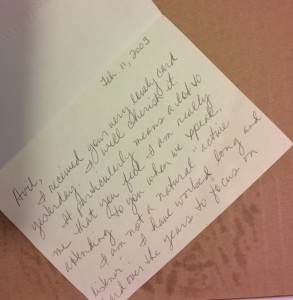 Feb. 11, 2003
Avril,
I received your very lovely card
yesterday. I will cherish it.
It particularly means a lot to
me that you feel I am really
attending to you when we speak.
I am not a natural "active
listener". I have worked long and
hard over the years to focus on